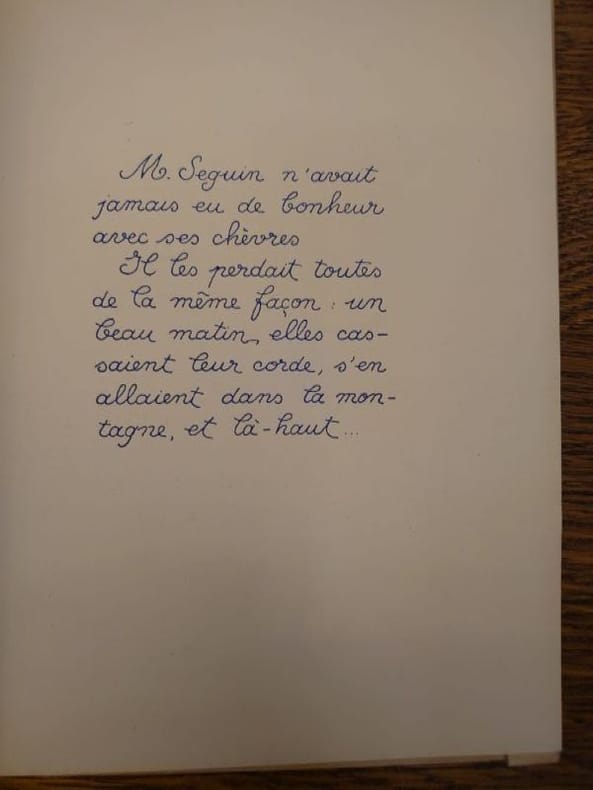 M. Seguin n'avait
jamais eu de bonheur
avec ses chèvres
Il les perdait toutes
de la même façon : un
beau matin, elles cas-
saient leur corde, s'en
allaient dans la mon-
tagne, et là-haut...